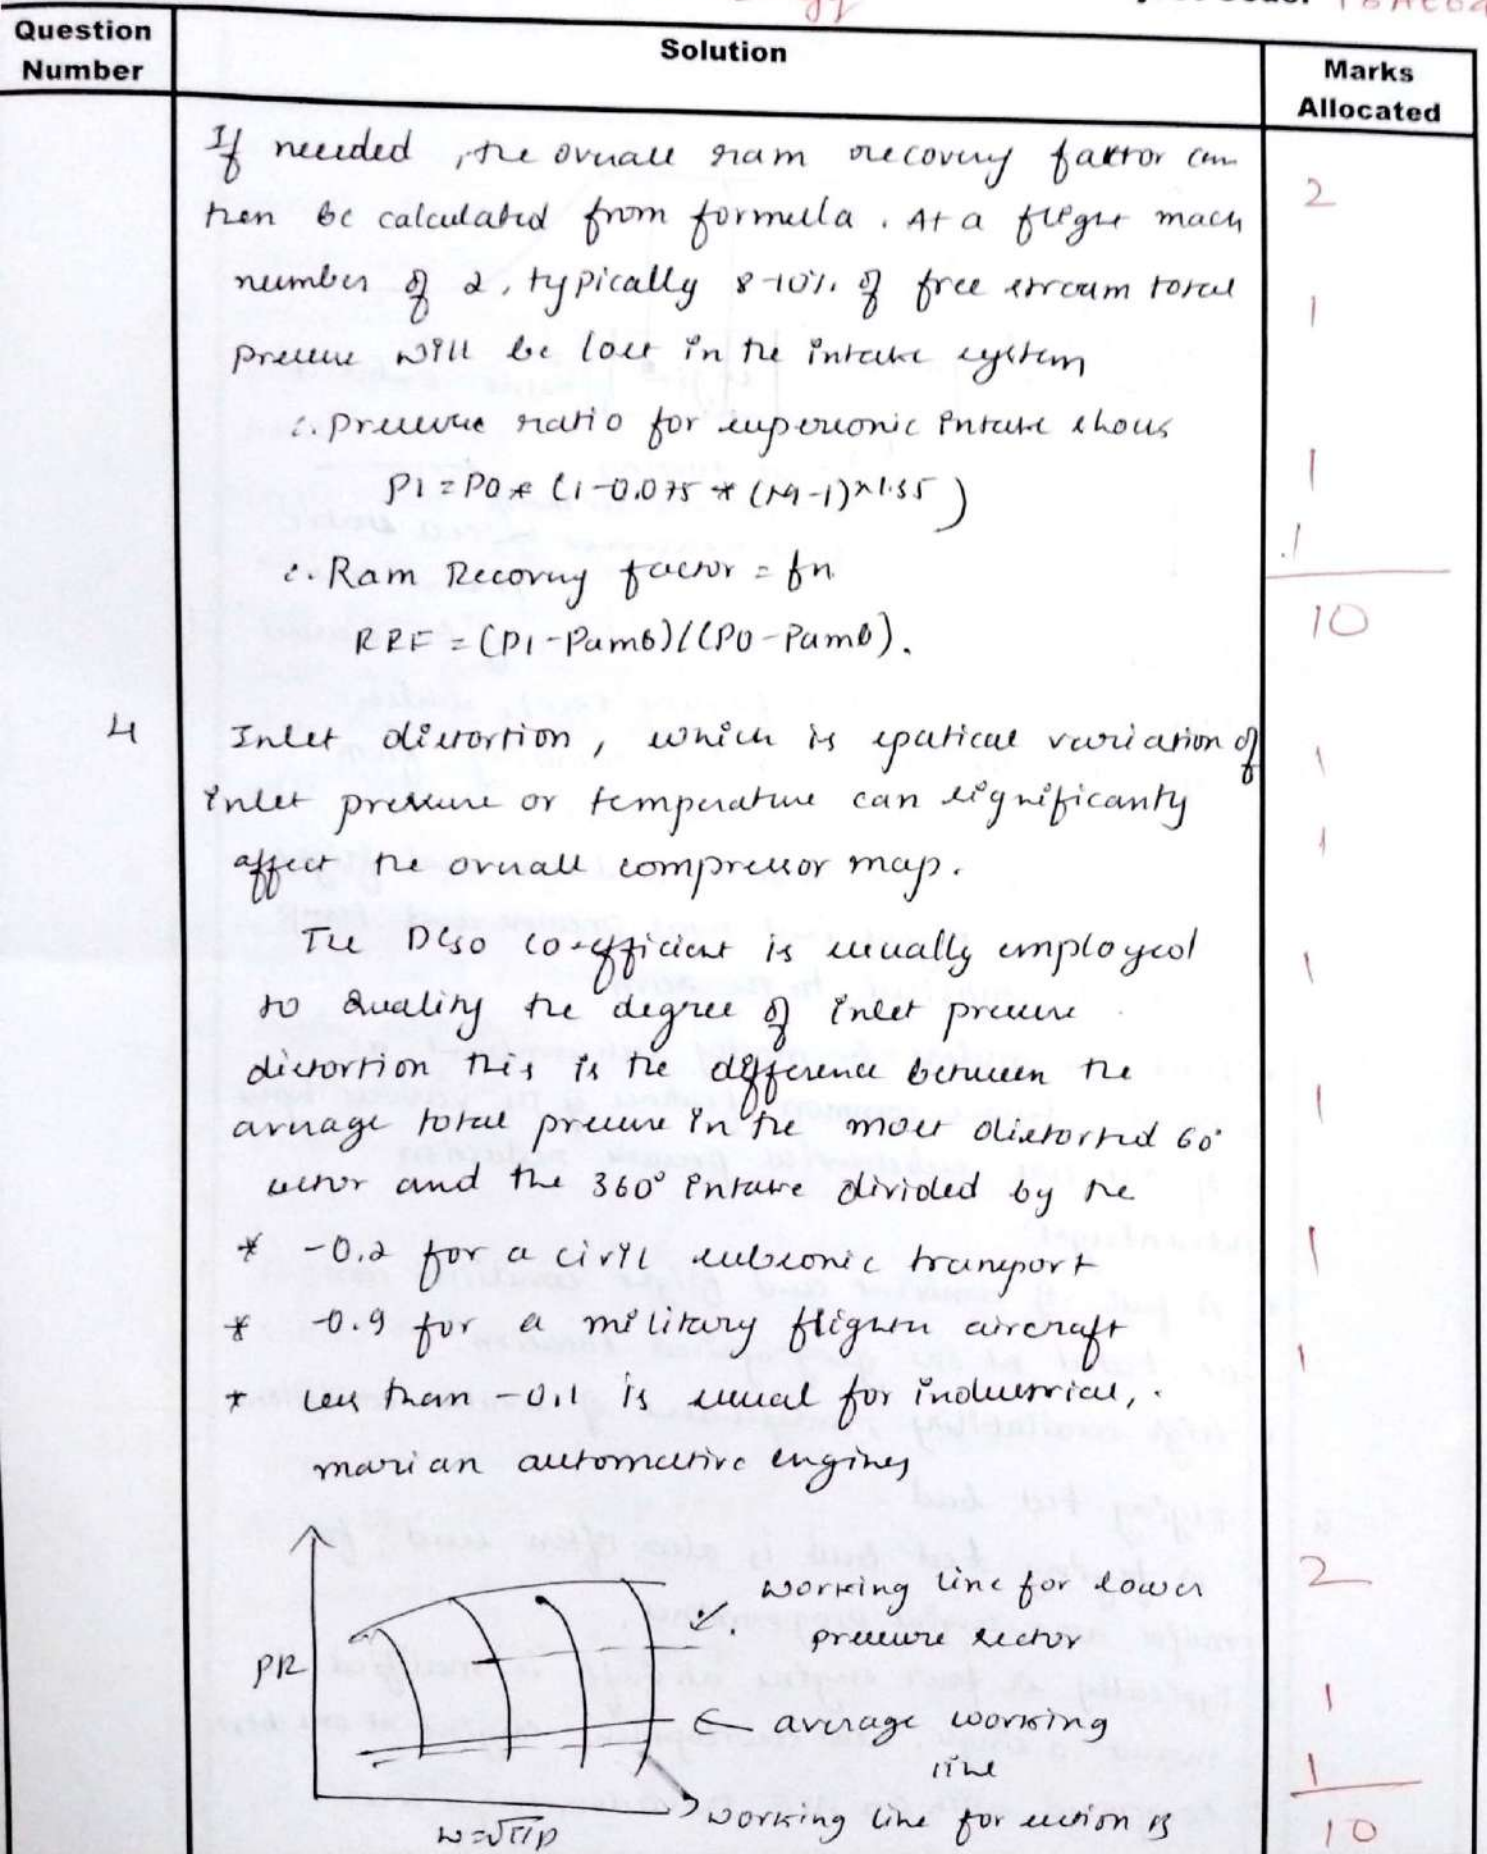 Question Number
Solution
Marks Allocated
If needed, the overall ram recovery factor can
2
then be calculated from formulla. At a flight mach
number of 2, typically 8-10% of free stream total
1
pressure will be lost in the intake system
∴ Pressure ratio for supersonic intake shous
1
P1 = P0 * (1-0.075 * (M-1)^1.35)
1
∴ Ram Recovry factor = fn
10
RRF = (P1-Pamb)/(P0-Pamb).
4
Inlet distortion, which is spatical variation of
1
inlet pressure or temperature can significanty
1
affect the overall compressor map.
The DC60 co-efficient is usually employed
1
to Quality the degree of inlet pressure
distortion this is the difference between the
1
average total pressure in the most distorted 60°
sector and the 360° intake divided by the
* -0.2 for a civil subsonic transport
1
* -0.9 for a military flightn aircraft
1
* less than -0.1 is usual for industrial,
marian automative engines
2
working line for lower
pressure sector
PR
1
average working
line
1
working line for section is
W=√T/P
10